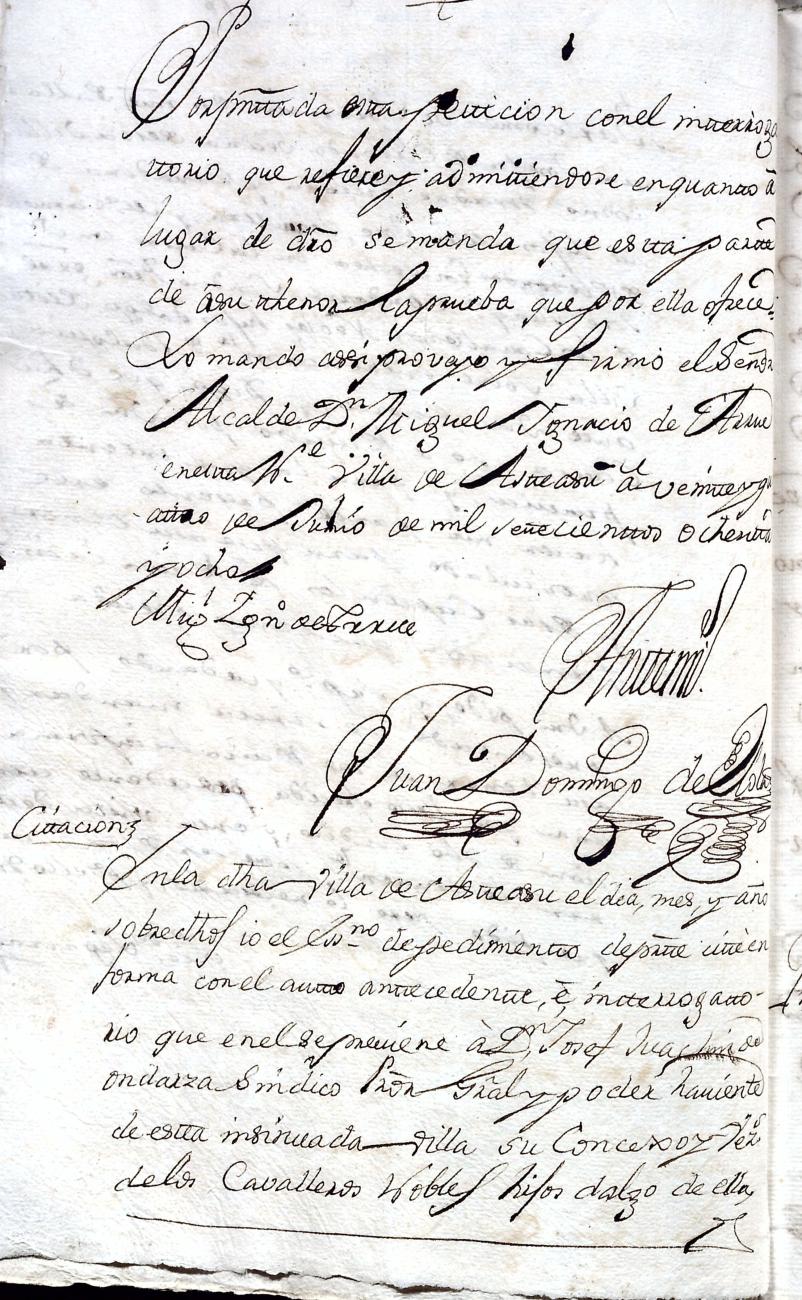 Por pnttada esta petticion con el interroga
ttorio que refiere y admittiendose en quantto â
lugar de dro se manda que estta partte
de â su thenor la prueba que por ella ofrece,
Lo mando assi proveyo y firmo el Señor
Alcalde Dn. Miguel Ygnacio de Trrue
en esta N.e Villa de Asteasu â veintte y qu
attro de Junio de mil settecienttos ochentta
y ocho
Migl Ygn.o de Yrrue
Antemi.
Juan Domingo de
Cittacion
En la dha Villa de Asteasu el dia, mes, y año
sobre dhos io el Ess.no de pedimientto de partte citte en
forma con el autto anttecedentte, ê, intterrogatto-
rio que en el se previene â Dn. Josef Juachin de
ondarza Sindico Pror Gral y poder haviente
de estta insinuada villa su Concexo y Vez.s
de los Cavalleros Nobles hijos dalgo de ella,